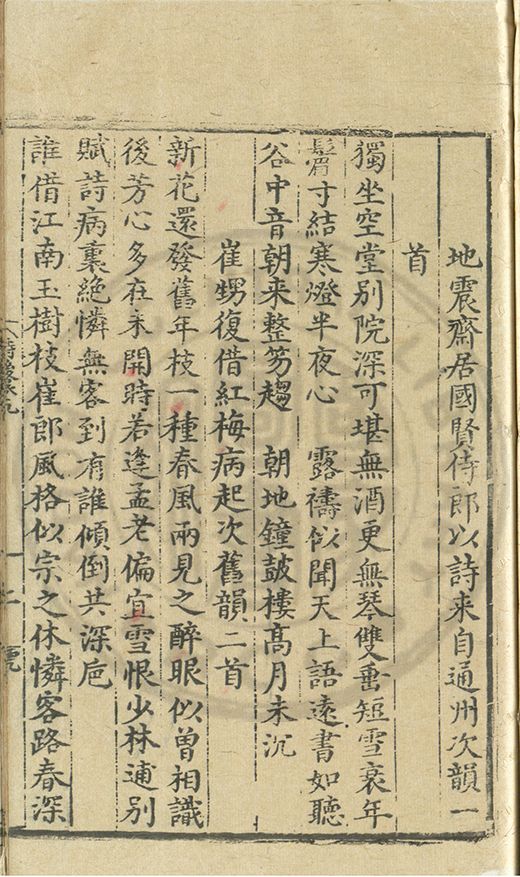 地震齋居國賢侍郎以詩来自通州次韻一
首
獨坐空堂別院深可堪無酒更無琴雙垂短雪衰年
鬢寸結寒燈半夜心 露禱似聞天上語遠書如聽
谷中音朝来整笏趨 朝地鐘鼓樓高月未沉
崔甥復借紅梅病起次舊韻二首
新花還發舊年枝一種春風兩見之醉眼似曾相識
後芳心多在未開時若逢孟老偏宜雪恨少林逋別
賦詩病裏絶憐無客到有誰傾倒共深巵
誰借江南玉樹枝崔郎風格似宗之休憐客路春深